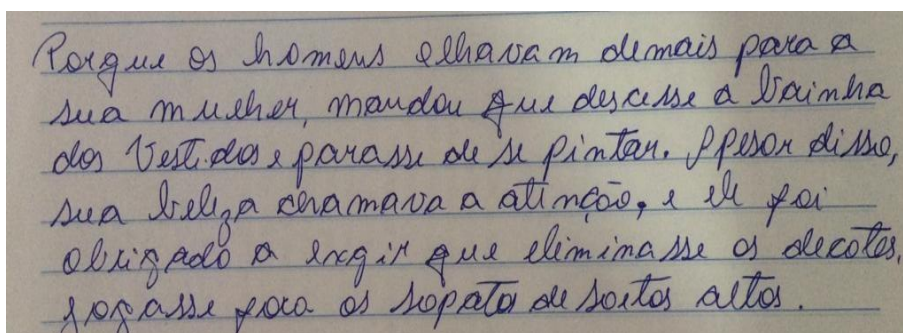 Porque os homens olhavam demais para a
sua mulher, mandou que descesse a bainha
dos vestidos e parasse de se pintar. Apesar disso,
sua beleza chamava a atenção, e ele foi
obrigado a exigir que eliminasse os decotes,
jogasse fora os sapato de saltos altos.